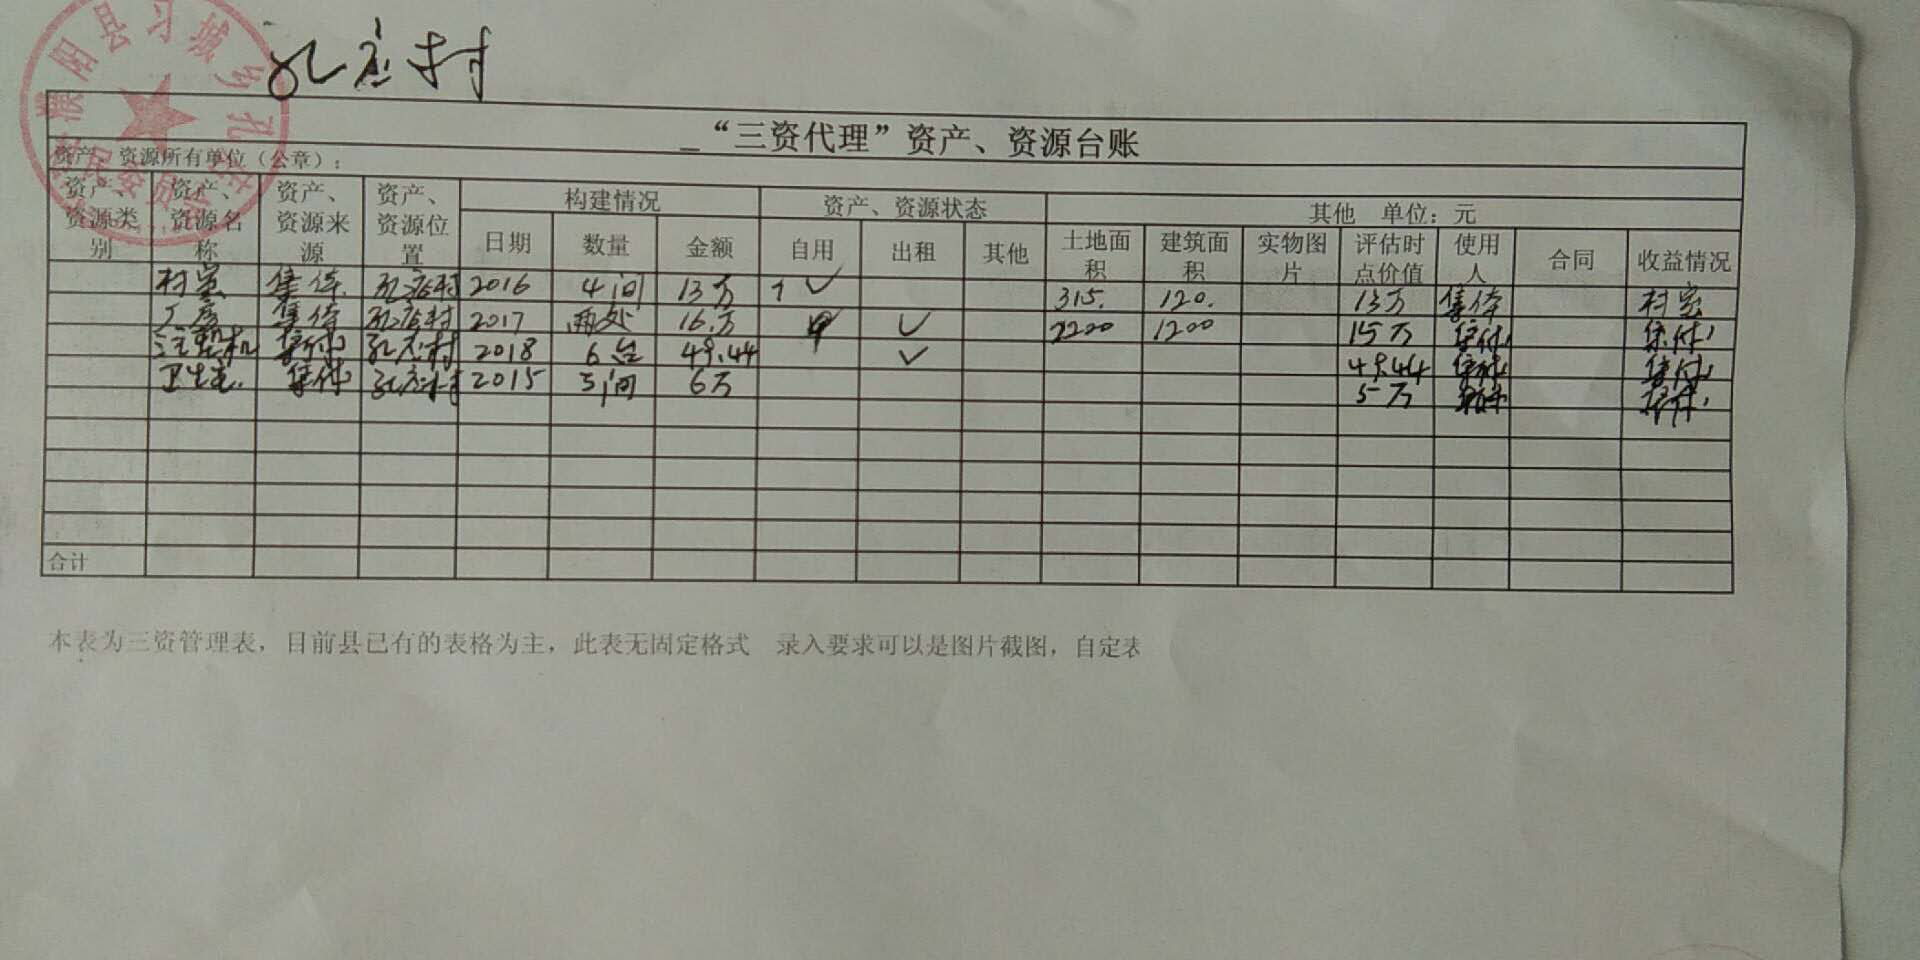 濮阳县习城乡孔
村民委员会
孔庄村
“三资代理”资产、资源台账
资产、资源所有单位（公章）：
资产、资源类别 资产、资源名称 资产、资源来源 资产、资源位置 构建情况 资产、资源状态 其他 单位：元
日期 数量 金额 自用 出租 其他 土地面积 建筑面积 实物图片 评估时点价值 使用人 合同 收益情况
村室 集体 孔庄村 2016 4间 13万 ✓ 315. 120. 13万 集体 村室
厂房 集体 孔庄村 2017 两处 16万 ✓ 2200 1200 15万 集体 集体
注塑机 集体 孔庄村 2018 6台 49.44 ✓ 49.44 集体 集体
卫生室 集体 孔庄村 2015 5间 6万 5万 集体 集体
合计
本表为三资管理表，目前县已有的表格为主，此表无固定格式 录入要求可以是图片截图，自定表